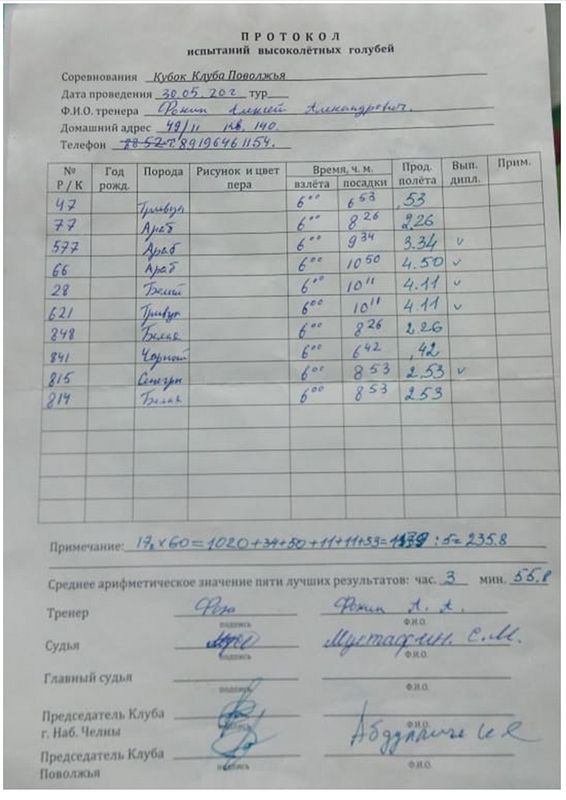 ПРОТОКОЛ
испытаний высоколётных голубей
Соревнования Кубок Клуба Поволжья
Дата проведения 30.05.20 г. тур
Ф.И.О. тренера Фокин Алексей Александрович.
Домашний адрес 49/11 кв. 140.
Телефон 89196461154.
№ Р / К Год рожд. Порода Рисунок и цвет пера Время, ч. м. взлёта посадки Прод. полёта Вып. дипл. Прим.
47 Тривун 6 00 6 53 ,53
77 Араб 6 00 8 26 2,26
577 Араб 6 00 9 34 3.34 v
66 Араб 6 00 10 50 4.50 v
28 Белый 6 00 10 11 4.11 v
621 Тривун 6 00 10 11 4.11 v
848 Белая 6 00 8 26 2.26
841 Чорный 6 00 6 42 ,42
815 6 00 8 53 2.53 v
814 Белая 6 00 8 53 2.53
Примечание: 17 x 60 = 1020+34+50+11+11+53= : 5= 235.8
Среднее арифметическое значение пяти лучших результатов: час. 3 мин. 55.8
Тренер Фокин А. А.
подпись Ф.И.О.
Судья Мустафин. С.М.
подпись Ф.И.О.
Главный судья
подпись Ф.И.О.
Председатель Клуба
г. Наб. Челны
подпись Ф.И.О.
Председатель Клуба
Поволжья
подпись Ф.И.О.